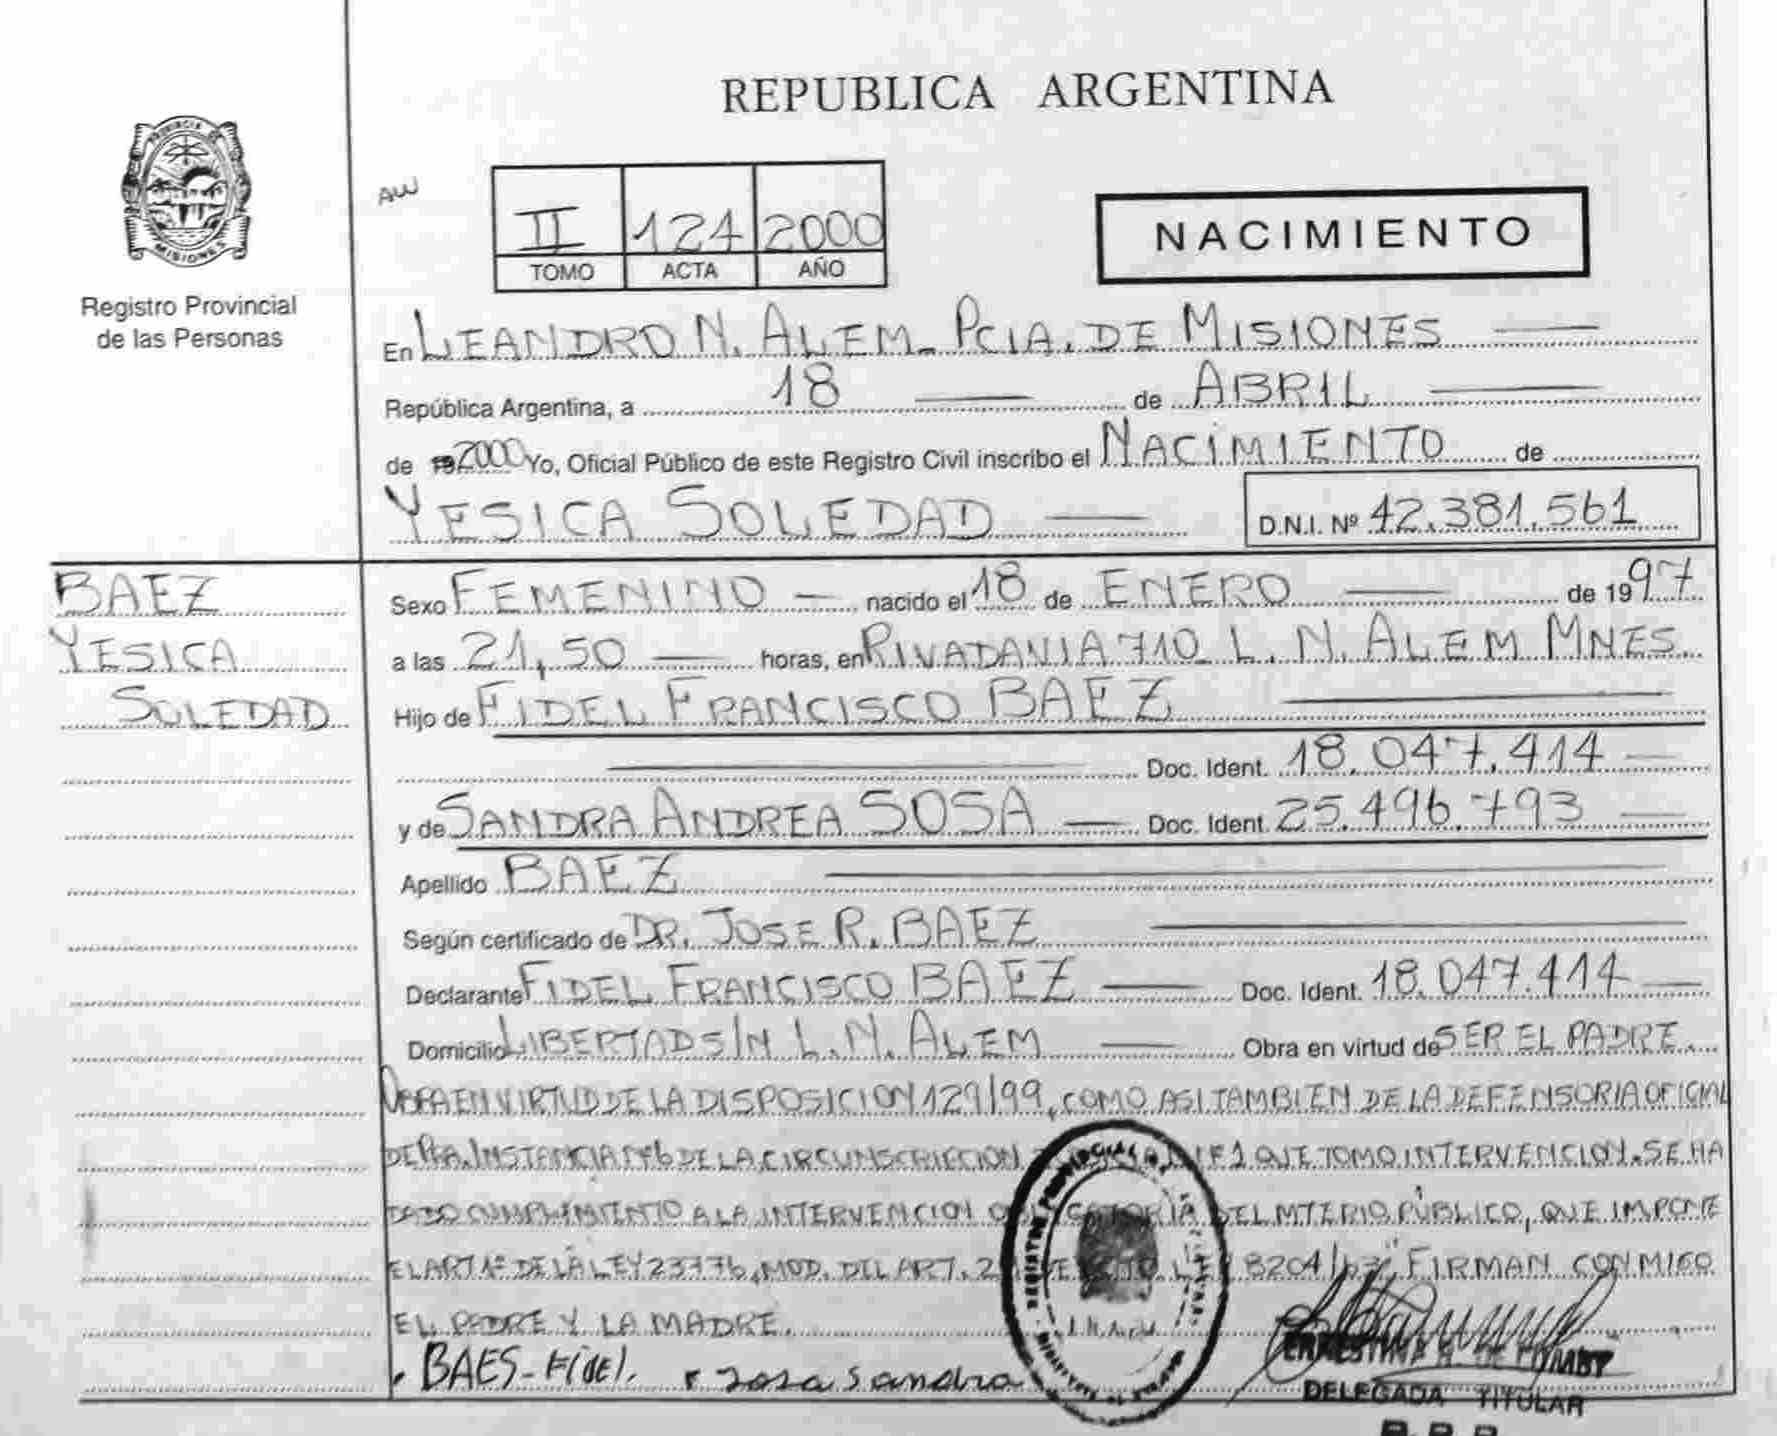 REPUBLICA ARGENTINA
PROVINCIA DE
MISIONES
Registro Provincial
de las Personas
AW
II 124 2000
TOMO ACTA AÑO
NACIMIENTO
En LEANDRO N. ALEM_ PCIA. DE MISIONES
República Argentina, a 18 de ABRIL
de 2000 Yo, Oficial Público de este Registro Civil inscribo el NACIMIENTO de
YESICA SOLEDAD D.N.I. Nº 42.381.561
BAEZ
YESICA
SOLEDAD
Sexo FEMENINO nacido el 18 de ENERO de 1997
a las 21,50 horas, en RIVADAVIA 710_ L. N. ALEM MNES.
Hijo de FIDEL FRANCISCO BAEZ
Doc. Ident. 18.047.414
y de SANDRA ANDREA SOSA Doc. Ident. 25.496.793
Apellido BAEZ
Según certificado de DR. JOSE R. BAEZ
Declarante FIDEL FRANCISCO BAEZ Doc. Ident. 18.047.414
Domicilio LIBERTAD S/N L.N. ALEM Obra en virtud de SER EL PADRE.
OBRA EN VIRTUD DE LA DISPOSICION 129/99, COMO ASI TAMBIEN DE LA DEFENSORIA OFICIAL
DE PRA. INSTANCIA Nº6 DE LA CIRCUNSCRIPCION QUE TOMO INTERVENCION. SE HA
DADO CUMPLIMIENTO A LA INTERVENCION OBLIGATORIA DEL MTERIO PÚBLICO, QUE IMPONE
EL ART 1º DE LA LEY 23776, MOD. DEL ART. 2 LEY 8204/63. FIRMAN CONMIGO
EL PADRE Y LA MADRE.
BAES-Fidel. Sosa Sandra
DELEGADA TITULAR